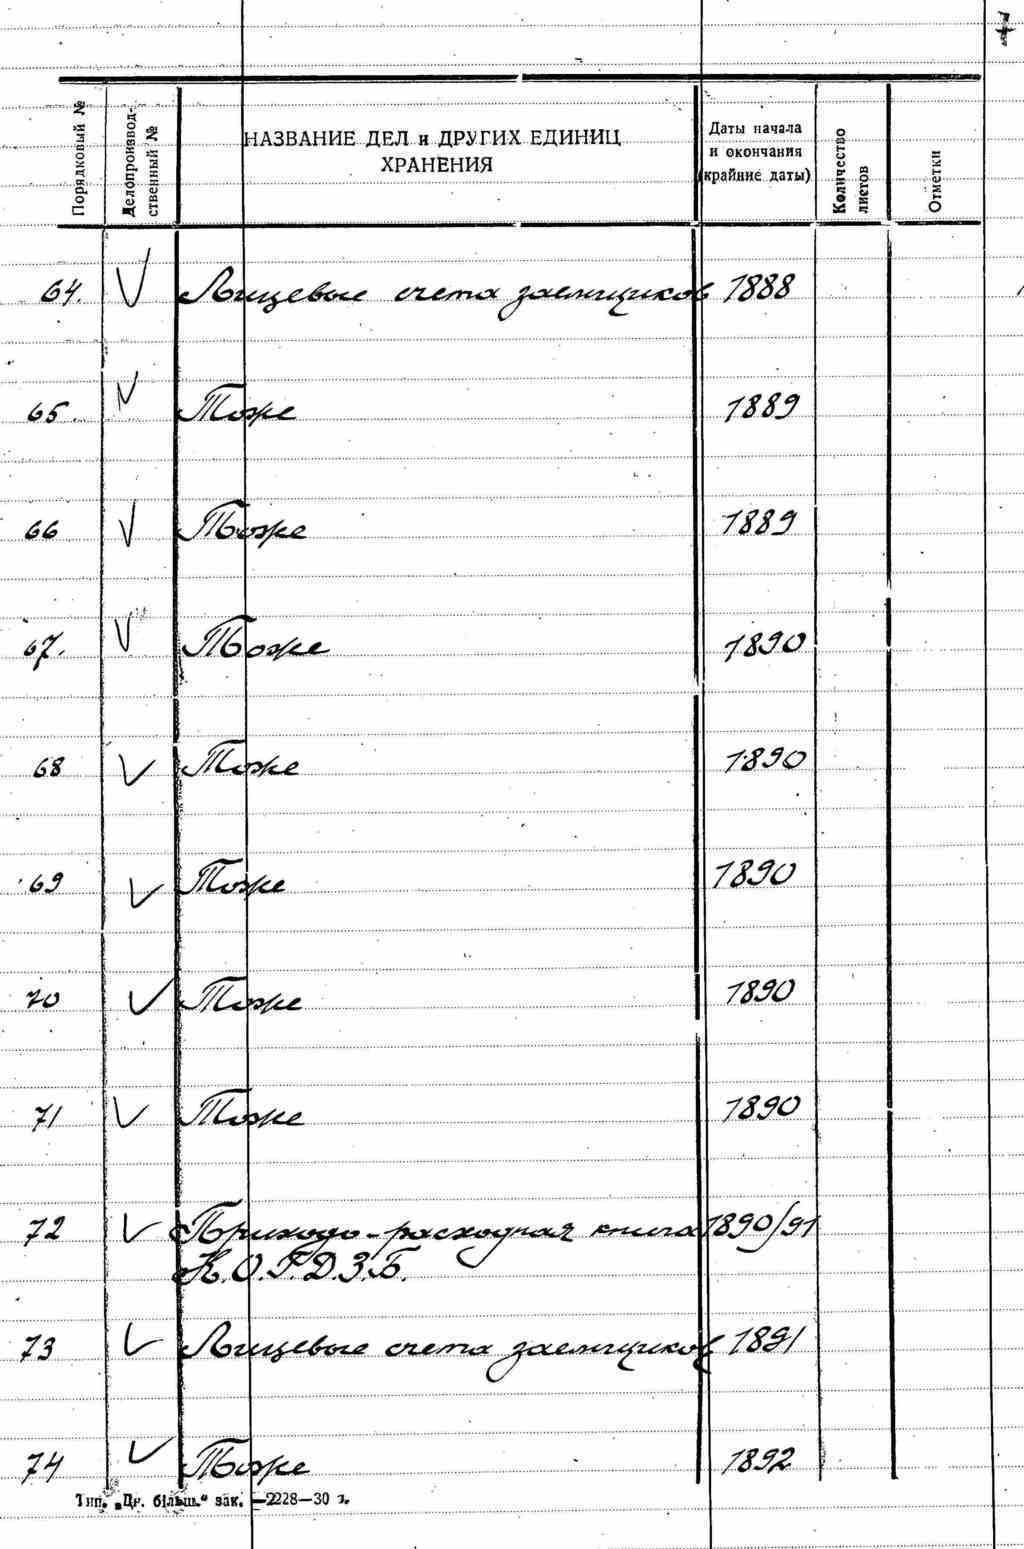 7
Порядковый №
Делопроизвод-
ственный №
НАЗВАНИЕ ДЕЛ и ДРУГИХ ЕДИНИЦ
ХРАНЕНИЯ
Даты начала
и окончания
(крайние даты)
Количество
листов
Отметки
64. V Лицевые счета заемщиков 1888
65. V Тоже 1889
66 V Тоже 1889
67. V Тоже 1890
68 V Тоже 1890
69 V Тоже 1890
70 V Тоже 1890
71 V Тоже 1890
72 V Приходо-расходная книга 1890/91
К.О.Г.Д.З.Б.
73 V Лицевые счета заемщиков 1891
74 V Тоже 1892
Тип. „Др. більш.“ зак. —2228—30 г.